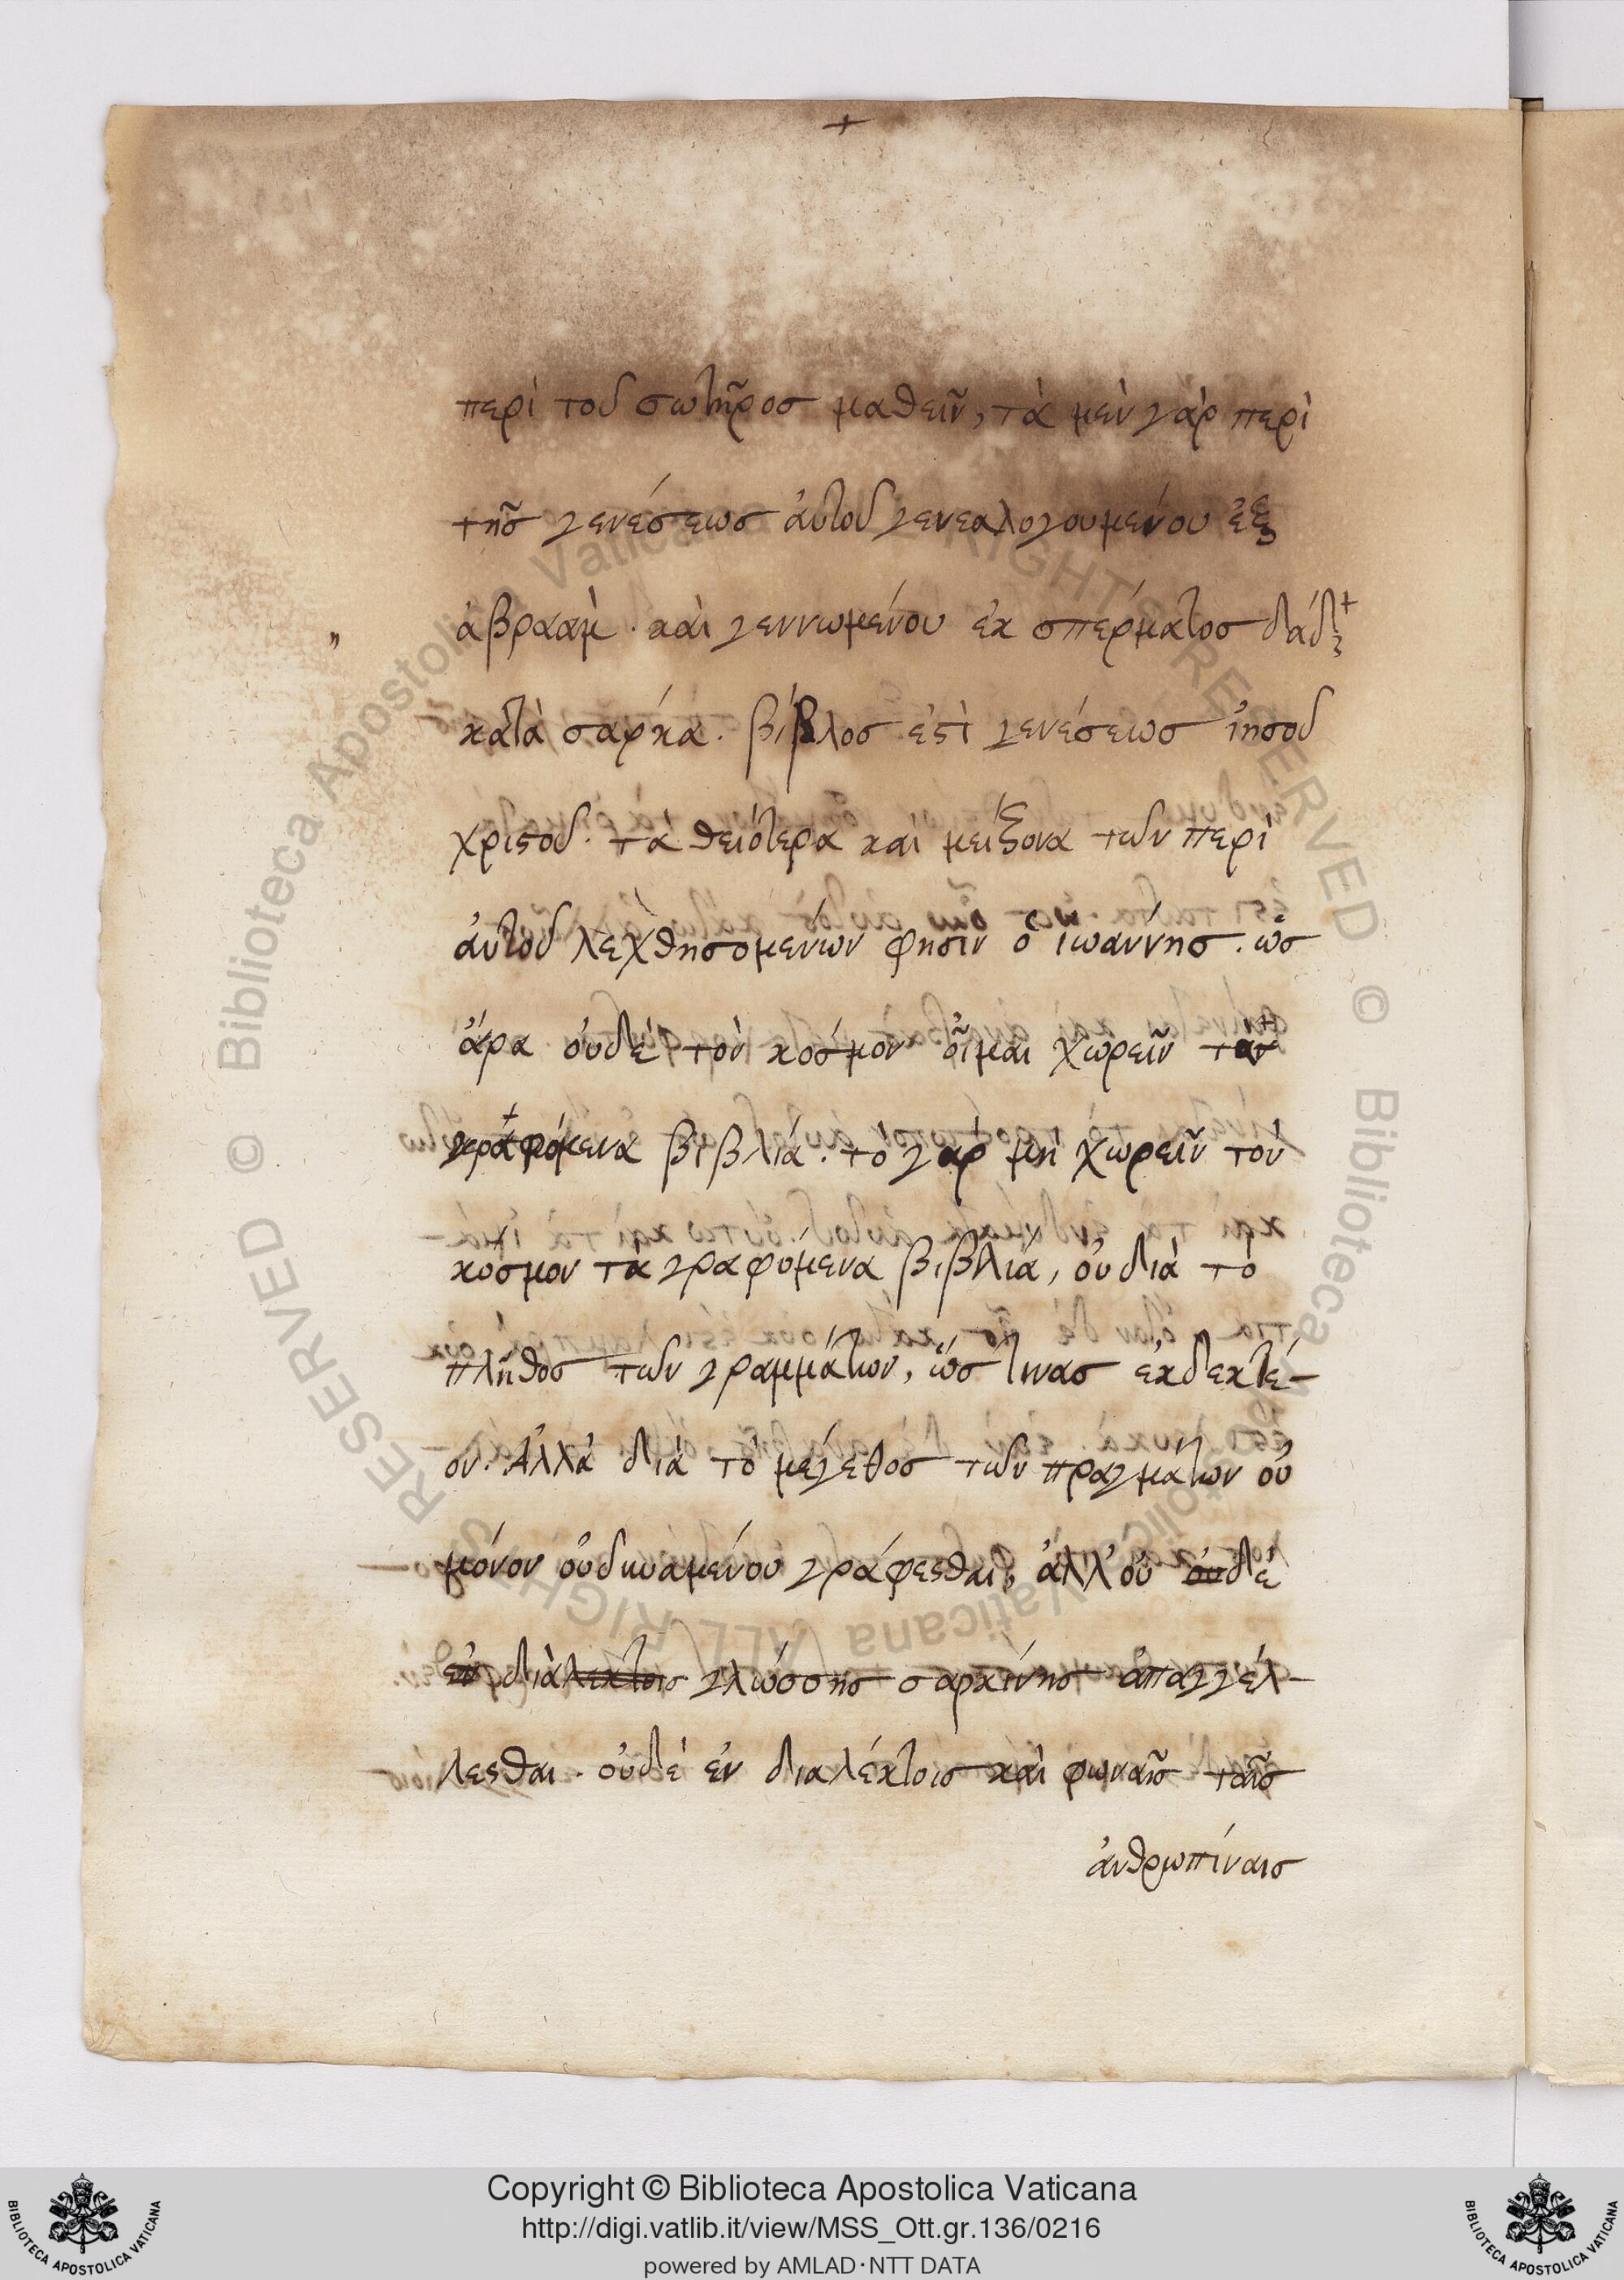 +
περὶ τοῦ σωτῆροσ μαθεῖν, τὰ μὲν γὰρ περὶ
τῆσ γενέσεωσ ἀυτοῦ γενεαλογουμένου ἐξ
„ ἀβραὰμ · καὶ γεννωμένου ἐκ σπέρματοσ δάδ+
κατὰ σαρκα. βίβλοσ ἐστὶ γενέσεωσ ἰησοῦ
χριστοῦ· τὰ θειότερα καὶ μείζονα τῶν περὶ
ἀυτοῦ λεχθησομένων φησὶν ὁ ἰωάννησ. ὡσ
ἄρα οὐδὲ τὸν κόσμον οἶμαι χωρεῖν τὰ
γραφόμενα βιβλία. τὸ γαρ μὴ χωρεῖν τὸν
κόσμον τὰ γραφόμενα βιβλία, οὐ διὰ τὸ
πλῆθοσ τῶν γραμμάτων, ὥσ τινασ ἐκδεκτέ-
ον. ἀλλὰ διὰ τὸ μέγεθοσ τῶν πραγμάτων οὐ
μόνον οὐ δυναμένου γράφεσθαι, ἀλλ' οὐ οὐδὲ
ἐν διὰλεκτοις γλώσσησ σαρκίνησ ἀπαγγέλ-
λεσθαι. οὐδὲ ἐν διαλέκτοισ καὶ φωναῖσ ταῖσ
ἀνθρωπίναισ
Copyright © Biblioteca Apostolica Vaticana
http://digi.vatlib.it/view/MSS_Ott.gr.136/0216
powered by AMLAD·NTT DATA
BIBLIOTECA APOSTOLICA VATICANA
BIBLIOTECA APOSTOLICA VATICANA
© Biblioteca Apostolica Vaticana ALL RIGHTS RESERVED